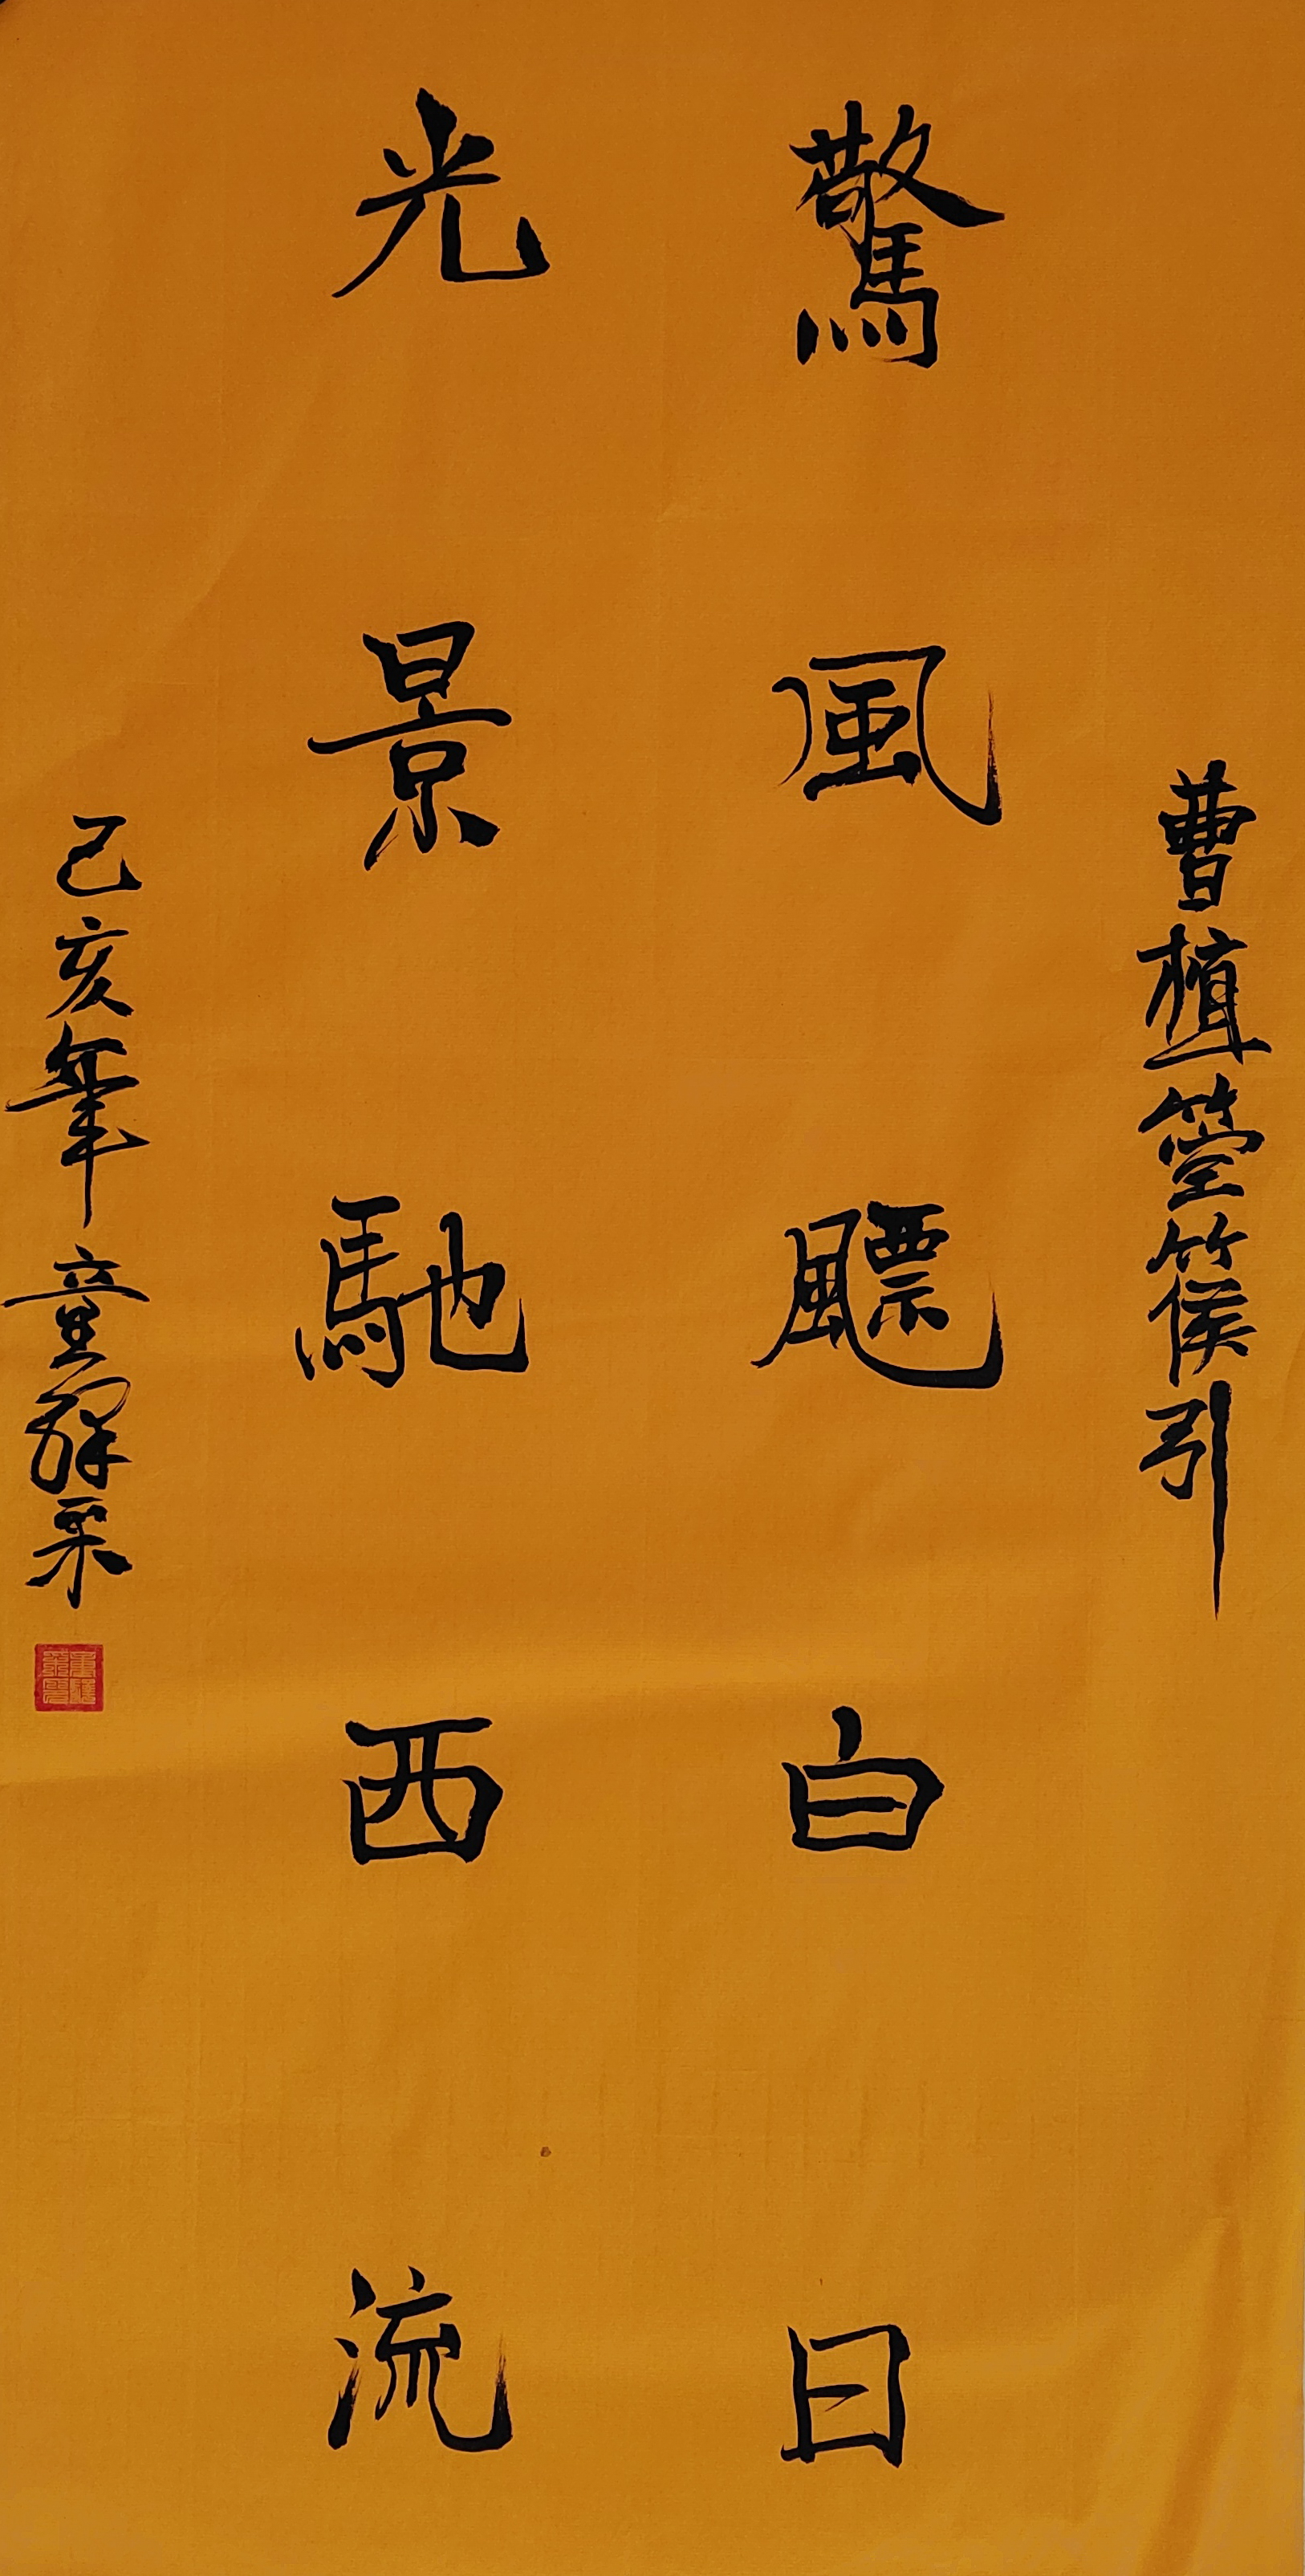 曹植箜篌引
驚風飄白日
光景馳西流
己亥年童